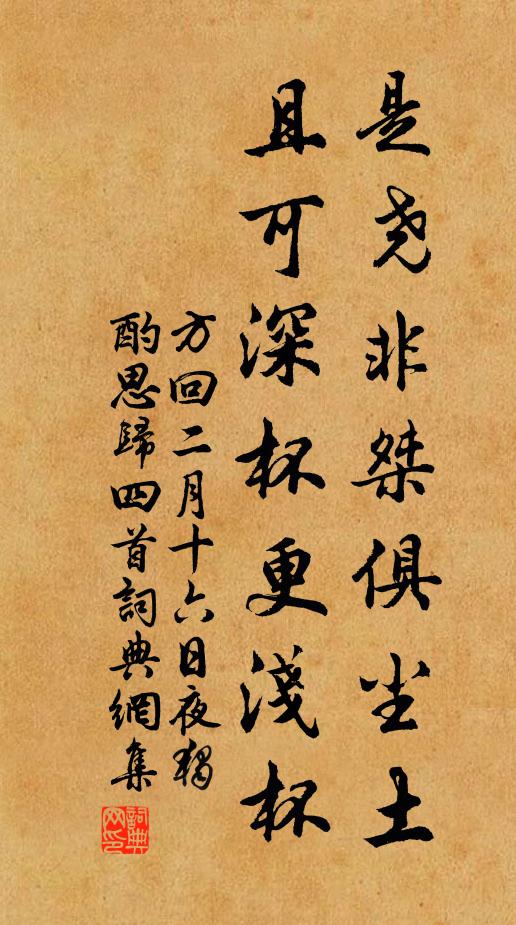 是尧非桀俱尘土
且可深杯更浅杯
方回二月十六日夜独
酌思歸四首詞典網集
詞典
网印